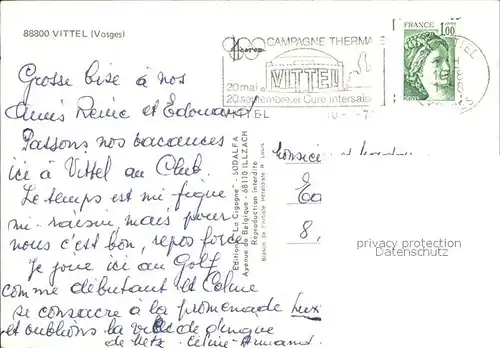 88800 VITTEL (Vosges)
CAMPAGNE THERMALE
VITTEL
20 mai
20 septembre et Cure intersaison
VITTEL
FRANCE
1,00
Grosse bise à nos
Amis Reine et Edouard
Passons nos vacances
ici à Vittel au Club.
Le temps est mi figue
mi-raisin, mais pour
nous c'est bon, repos forcé
Je joue ici au Golf
comme débutant et Céline
se consacre à la promenade
et oublions la
de Metz. Céline-Armand
Editions "La Cigogne" - SODALFA
Avenue de Belgique - 68110 ILLZACH
Reproduction Interdite
Monsieur et
8,
privacy protection
Datenschutz